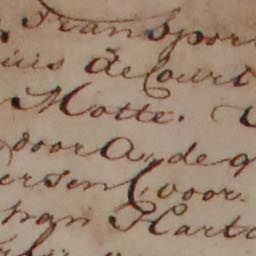 Transpor
uis de Court
Motte.
door A, de
ersen voor
han Kart